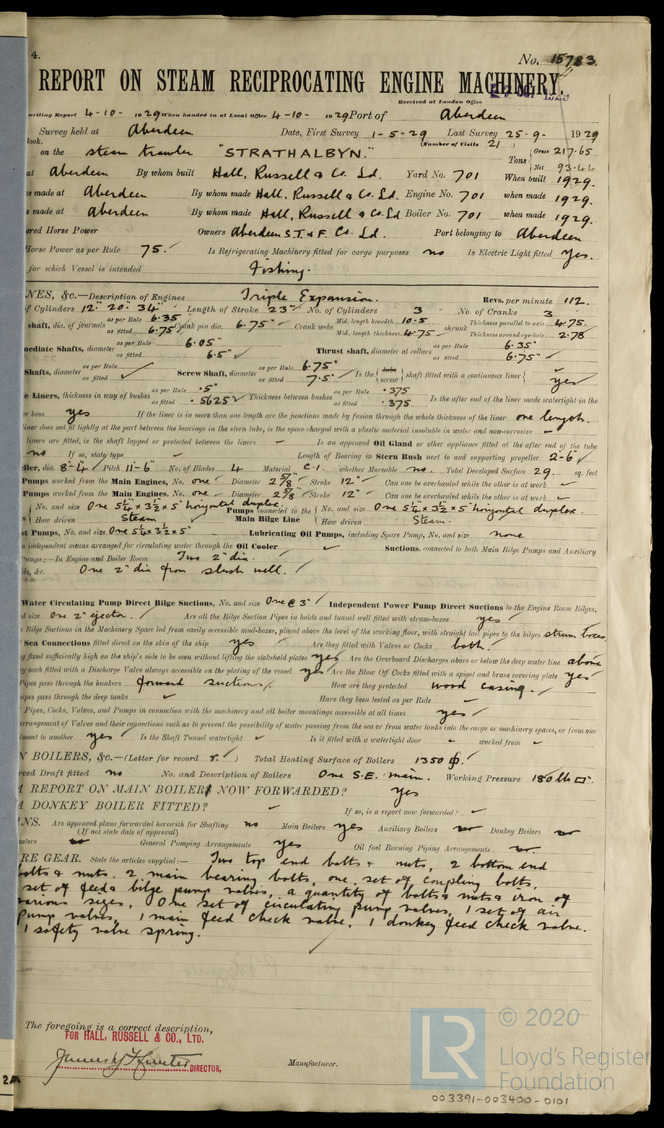 4.
No. 15783
REPORT ON STEAM RECIPROCATING ENGINE MACHINERY.
Received at London Office
writing Report 4-10-1929 When handed in at Local Office 4-10-1929 Port of Aberdeen
Survey held at Aberdeen Date, First Survey 1-5-29 Last Survey 25-9-1929
(Number of Visits 21)
on the steam trawler "STRATHALBYN." Tons { Gross 217.65
Net 93.44
at Aberdeen By whom built Hall, Russell & Co. Ld. Yard No. 701 When built 1929.
s made at Aberdeen By whom made Hall, Russell & Co. Ld. Engine No. 701 when made 1929.
s made at Aberdeen By whom made Hall, Russell & Co. Ld Boiler No. 701 when made 1929.
ered Horse Power Owners Aberdeen S.T. & F. Co. Ld. Port belonging to Aberdeen
Horse Power as per Rule 75. Is Refrigerating Machinery fitted for cargo purposes no Is Electric Light fitted yes.
for which Vessel is intended Fishing.
NES, &c.—Description of Engines Triple Expansion. Revs. per minute 112.
of Cylinders 12" 20" 34" Length of Stroke 23" No. of Cylinders 3 No. of Cranks 3
shaft, dia. of journals as per Rule 6.35 as fitted 6.75 Crank pin dia. 6.75" Crank webs Mid. length breadth 10.5 Mid. length thickness 4.75 shrunk Thickness parallel to axis 4.75 Thickness around eye-hole 2.78
mediate Shafts, diameter as per Rule 6.05" as fitted 6.5" Thrust shaft, diameter at collars as per Rule 6.35" as fitted 6.75"
Shafts, diameter as per Rule as fitted Screw Shaft, diameter as per Rule 6.75" as fitted 7.5" Is the { tube screw } shaft fitted with a continuous liner { yes
e Liners, thickness in way of bushes as per Rule .5" as fitted .5625 Thickness between bushes as per Rule .375 as fitted .375 Is the after end of the liner made watertight in the
er boss yes If the liner is in more than one length are the junctions made by fusion through the whole thickness of the liner one length.
liner does not fit tightly at the part between the bearings in the stern tube, is the space charged with a plastic material insoluble in water and non-corrosive
liners are fitted, is the shaft lapped or protected between the liners Is an approved Oil Gland or other appliance fitted at the after end of the tube
no If so, state type Length of Bearing in Stern Bush next to and supporting propeller 2-6"
ller, dia. 8-4 Pitch 11-6" No. of Blades 4 Material C.I. whether Moveable no. Total Developed Surface 29 sq. feet
Pumps worked from the Main Engines, No. one Diameter 2 5/8" Stroke 12" Can one be overhauled while the other is at work
Pumps worked from the Main Engines, No. one Diameter 2 5/8" Stroke 12" Can one be overhauled while the other is at work
{ No. and size One 5¼ x 3½ x 5" horizontal duplex. Pumps connected to the { No. and size One 5¼ x 3½ x 5" horizontal duplex.
{ How driven Steam Main Bilge Line How driven Steam.
st Pumps, No. and size One 5¼ x 3½ x 5" Lubricating Oil Pumps, including Spare Pump, No. and size none
o independent means arranged for circulating water through the Oil Cooler Suctions, connected to both Main Bilge Pumps and Auxiliary
Pumps;—In Engine and Boiler Room Two 2" dia.
ds, &c. One 2" dia from slush well.
Water Circulating Pump Direct Bilge Suctions, No. and size One @ 3" Independent Power Pump Direct Suctions to the Engine Room Bilges,
d size One 2" ejector. Are all the Bilge Suction Pipes in holds and tunnel well fitted with strum-boxes yes
e Bilge Suctions in the Machinery Space led from easily accessible mud-boxes, placed above the level of the working floor, with straight tail pipes to the bilges strum boxes.
Sea Connections fitted direct on the skin of the ship yes Are they fitted with Valves or Cocks both.
y fixed sufficiently high on the ship's side to be seen without lifting the stokehold plates yes Are the Overboard Discharges above or below the deep water line above
y each fitted with a Discharge Valve always accessible on the plating of the vessel yes Are the Blow Off Cocks fitted with a spigot and brass covering plate yes
Pipes pass through the bunkers forward suctions How are they protected wood casing.
ipes pass through the deep tanks Have they been tested as per Rule
Pipes, Cocks, Valves, and Pumps in connection with the machinery and all boiler mountings accessible at all times yes
rrangement of Valves and their connections such as to prevent the possibility of water passing from the sea or from water tanks into the cargo or machinery spaces, or from one
ment to another yes Is the Shaft Tunnel watertight Is it fitted with a watertight door worked from
N BOILERS, &c.—(Letter for record r.) Total Heating Surface of Boilers 1350
rced Draft fitted no No. and Description of Boilers One S.E. main. Working Pressure 180 lb
A REPORT ON MAIN BOILERS NOW FORWARDED? yes
A DONKEY BOILER FITTED? If so, is a report now forwarded?
NS. Are approved plans forwarded herewith for Shafting no Main Boilers yes Auxiliary Boilers Donkey Boilers
(If not state date of approval)
General Pumping Arrangements yes Oil fuel Burning Piping Arrangements
RE GEAR. State the articles supplied:— Two top end bolts & nuts, 2 bottom end
bolts & nuts. 2 main bearing bolts, one set of coupling bolts,
set of feed & bilge pump valves, a quantity of bolts & nuts & iron of
various sizes. One set of circulating pump valves, 1 set of air
pump valves, 1 main feed check valve. 1 donkey feed check valve.
1 safety valve spring.
The foregoing is a correct description,
FOR HALL, RUSSELL & CO., LTD.
DIRECTOR, Manufacturer.
LR
© 2020
Lloyd's Register
Foundation
003391-003400-0101